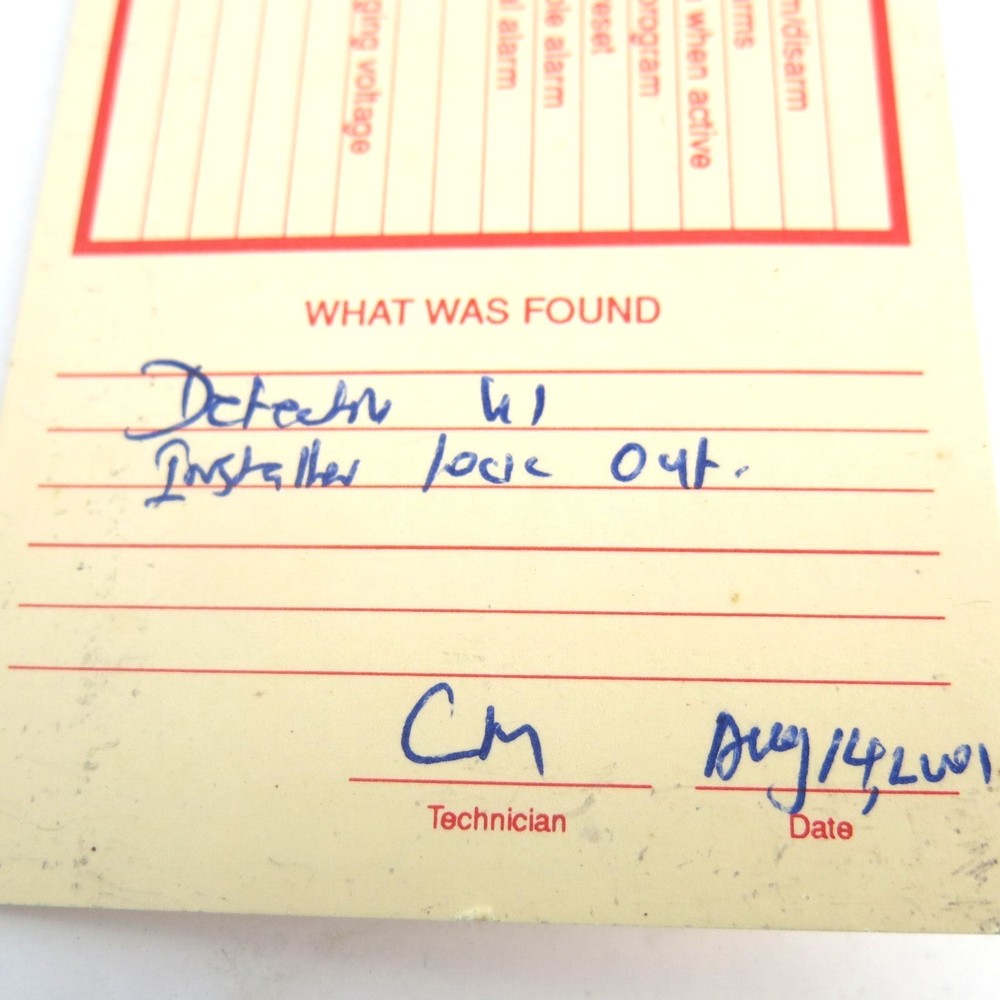 ging voltage
l alarm
ble alarm
eset
program
when active
rms
m/disarm
WHAT WAS FOUND
Detector
Installer lock Out.
CM
Aug 14, 2001
Technician
Date